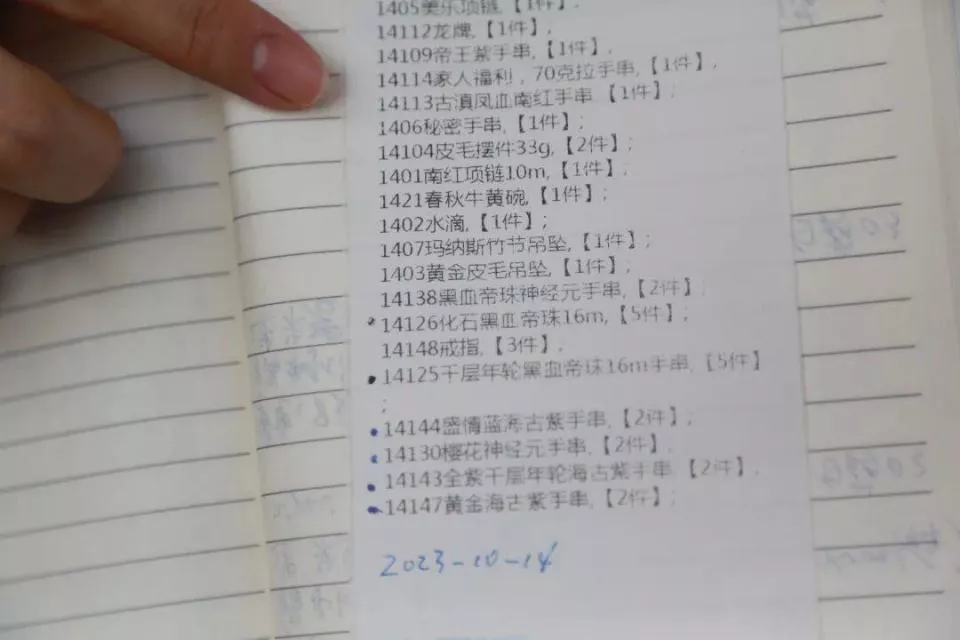 1405美乐项链,【1件】.
14112龙牌,【1件】,
14109帝王紫手串,【1件】,
14114家人福利，70克拉手串,【1件】,
14113古滇凤血南红手串,【1件】;
1406秘密手串,【1件】;
14104皮毛摆件33g,【2件】;
1401南红项链10m,【1件】;
1421春秋牛黄碗,【1件】;
1402水滴,【1件】;
1407玛纳斯竹节吊坠,【1件】;
1403黄金皮毛吊坠,【1件】;
14138黑血帝珠神经元手串,【2件】;
14126化石黑血帝珠16m,【5件】;
14148戒指,【3件】,
14125千层年轮黑血帝珠16m手串,【5件】
;
14144盛情蓝海古紫手串,【2件】;
14130樱花神经元手串,【2件】.
14143全紫千层年轮海古紫手串,【2件】.
14147黄金海古紫手串,【2件】;
2023-10-14